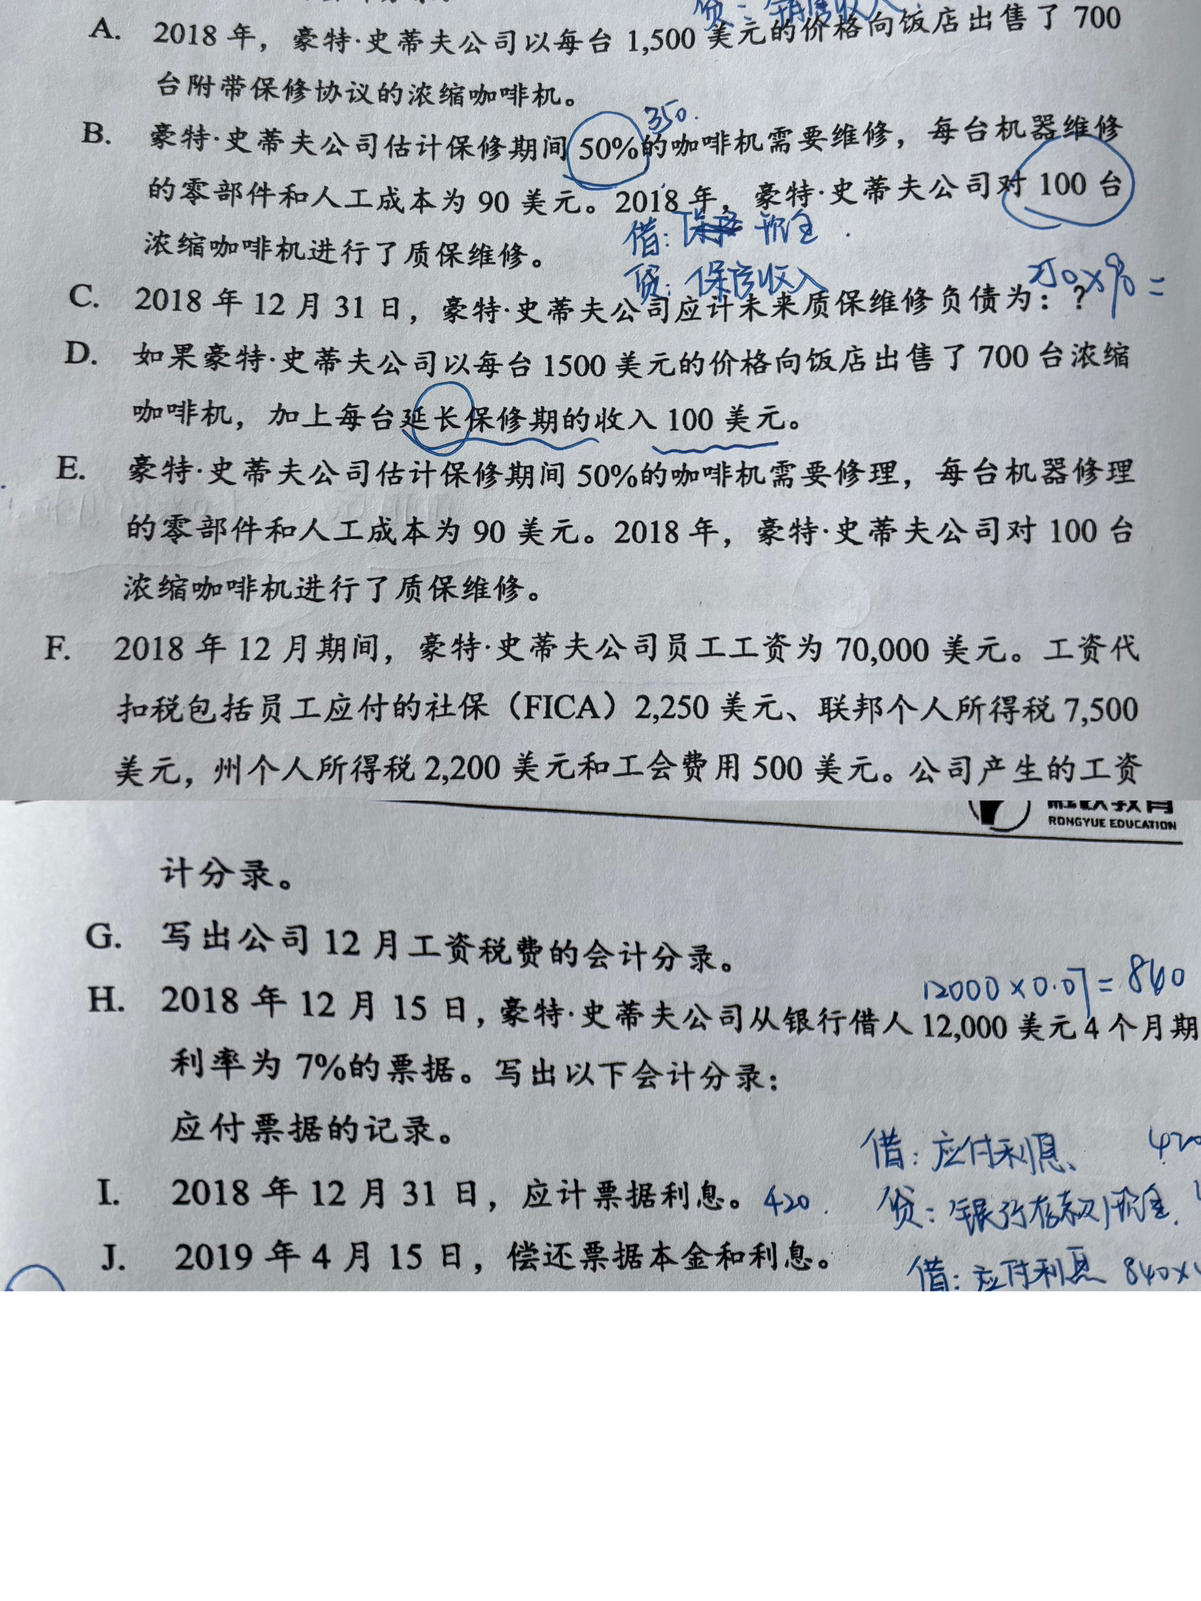 贷：销售收入
A. 2018 年，豪特·史蒂夫公司以每台 1,500 美元的价格向饭店出售了 700
台附带保修协议的浓缩咖啡机。
350.
B. 豪特·史蒂夫公司估计保修期间 50%的咖啡机需要维修，每台机器维修
的零部件和人工成本为 90 美元。2018 年，豪特·史蒂夫公司对 100 台
借： 现金.
浓缩咖啡机进行了质保维修。
贷：保修收入
C. 2018 年 12 月 31 日，豪特·史蒂夫公司应计未来质保维修负债为：？
D. 如果豪特·史蒂夫公司以每台 1500 美元的价格向饭店出售了 700 台浓缩
咖啡机，加上每台延长保修期的收入 100 美元。
E. 豪特·史蒂夫公司估计保修期间 50%的咖啡机需要修理，每台机器修理
的零部件和人工成本为 90 美元。2018 年，豪特·史蒂夫公司对 100 台
浓缩咖啡机进行了质保维修。
F. 2018 年 12 月期间，豪特·史蒂夫公司员工工资为 70,000 美元。工资代
扣税包括员工应付的社保（FICA）2,250 美元、联邦个人所得税 7,500
美元，州个人所得税 2,200 美元和工会费用 500 美元。公司产生的工资
RONGYUE EDUCATION
计分录。
G. 写出公司 12 月工资税费的会计分录。
12000×0.07=840
H. 2018 年 12 月 15 日，豪特·史蒂夫公司从银行借入 12,000 美元 4 个月期
利率为 7%的票据。写出以下会计分录：
应付票据的记录。
借：应付利息 420
I. 2018 年 12 月 31 日，应计票据利息。420.
贷：银行存款/现金
J. 2019 年 4 月 15 日，偿还票据本金和利息。
借：应付利息 840×